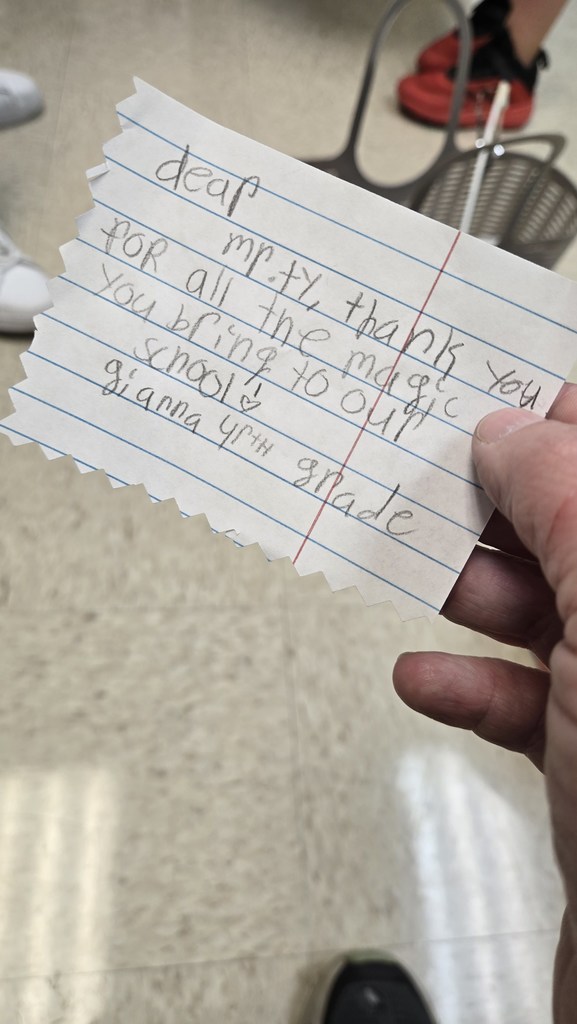 dear
mr.ty, thank you
for all the magic
you bring to our
school!
gianna 4rth grade